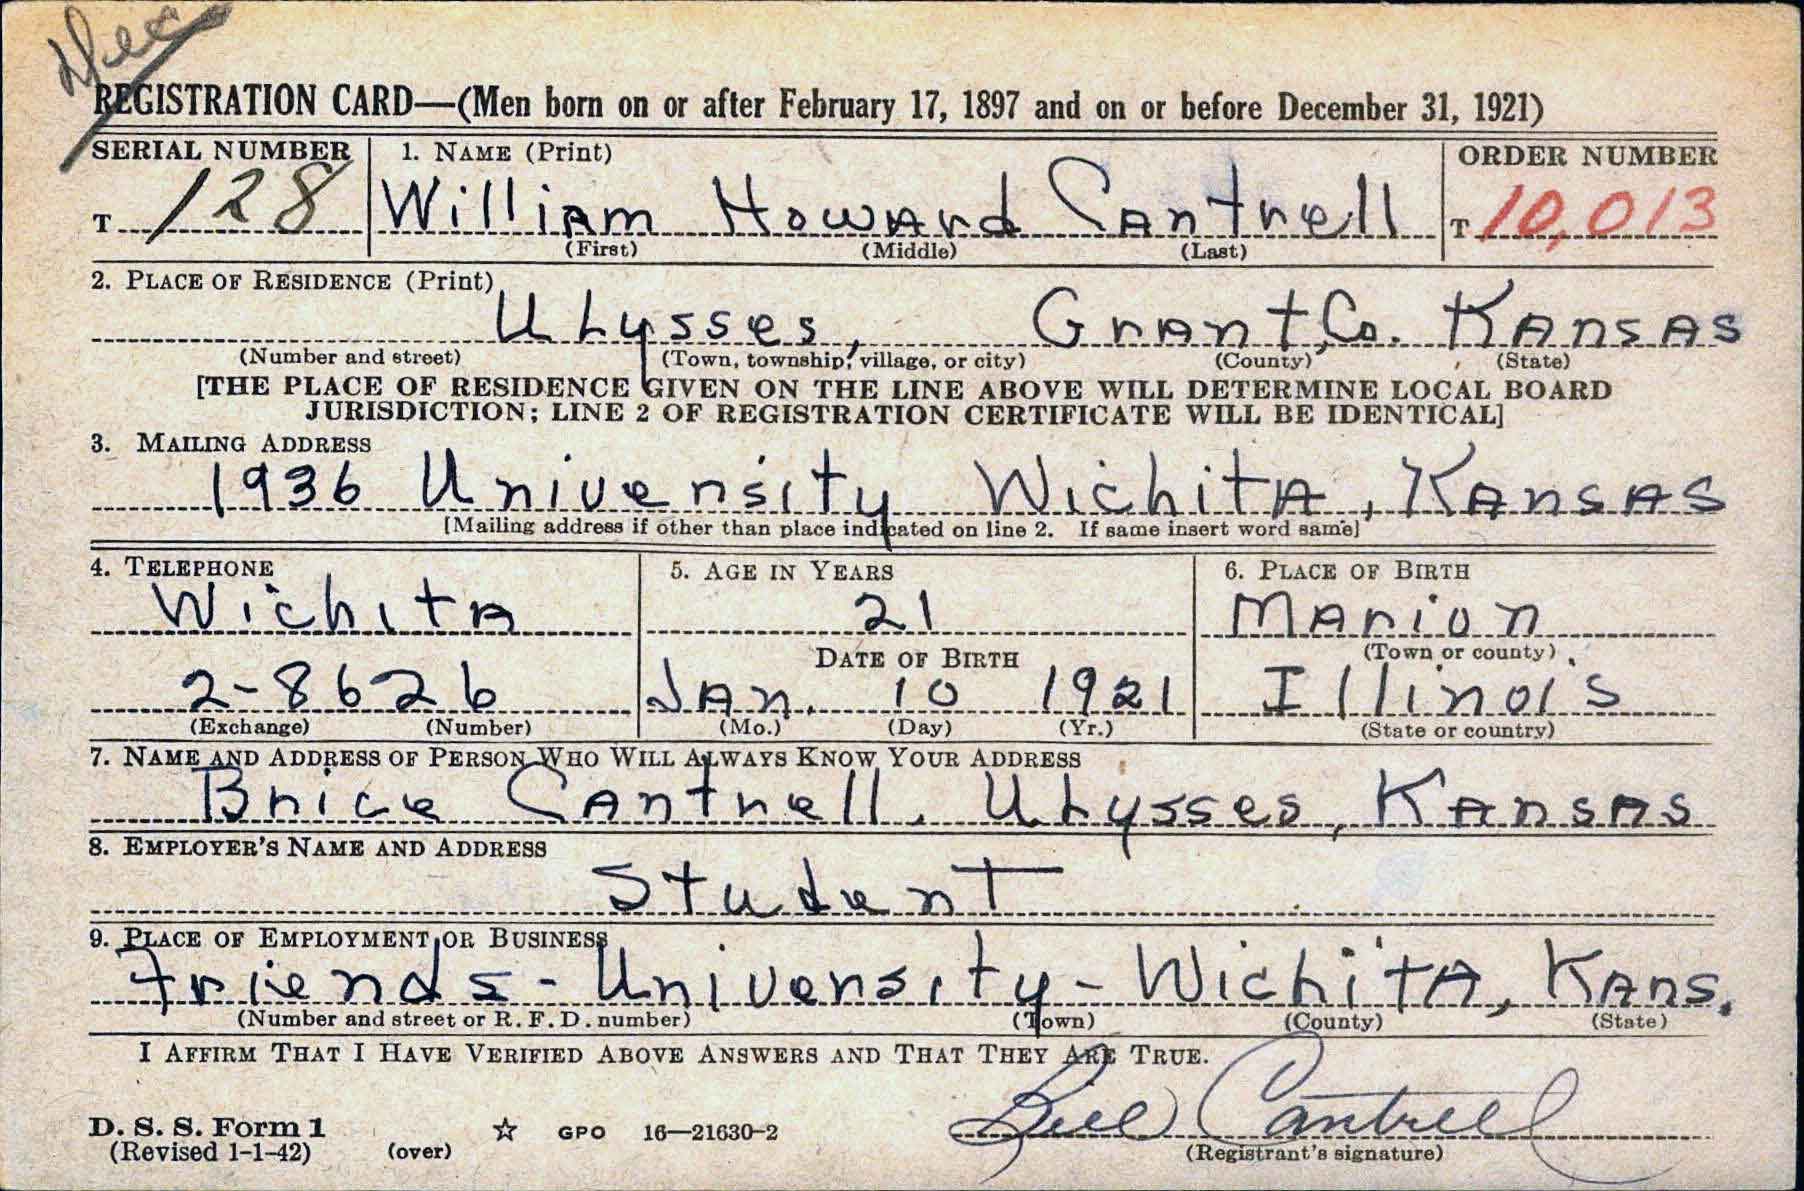 Dec
REGISTRATION CARD—(Men born on or after February 17, 1897 and on or before December 31, 1921)
SERIAL NUMBER 1. NAME (Print) ORDER NUMBER
T 128 William Howard Cantrell T 10,013
(First) (Middle) (Last)
2. PLACE OF RESIDENCE (Print)
Ulysses, Grant, Co. Kansas
(Number and street) (Town, township, village, or city) (County) (State)
[THE PLACE OF RESIDENCE GIVEN ON THE LINE ABOVE WILL DETERMINE LOCAL BOARD
JURISDICTION; LINE 2 OF REGISTRATION CERTIFICATE WILL BE IDENTICAL]
3. MAILING ADDRESS
1936 University Wichita, Kansas
[Mailing address if other than place indicated on line 2. If same insert word same]
4. TELEPHONE 5. AGE IN YEARS 6. PLACE OF BIRTH
Wichita 21 Marion
DATE OF BIRTH (Town or county)
2-8626 Jan. 10 1921 Illinois
(Exchange) (Number) (Mo.) (Day) (Yr.) (State or country)
7. NAME AND ADDRESS OF PERSON WHO WILL ALWAYS KNOW YOUR ADDRESS
Brice Cantrell, Ulysses, Kansas
8. EMPLOYER'S NAME AND ADDRESS
Student
9. PLACE OF EMPLOYMENT OR BUSINESS
Friends - University - Wichita, Kans.
(Number and street or R. F. D. number) (Town) (County) (State)
I AFFIRM THAT I HAVE VERIFIED ABOVE ANSWERS AND THAT THEY ARE TRUE.
Bill Cantrell
D. S. S. Form 1
(Revised 1-1-42) (over) ☆ GPO 16—21630-2 (Registrant's signature)